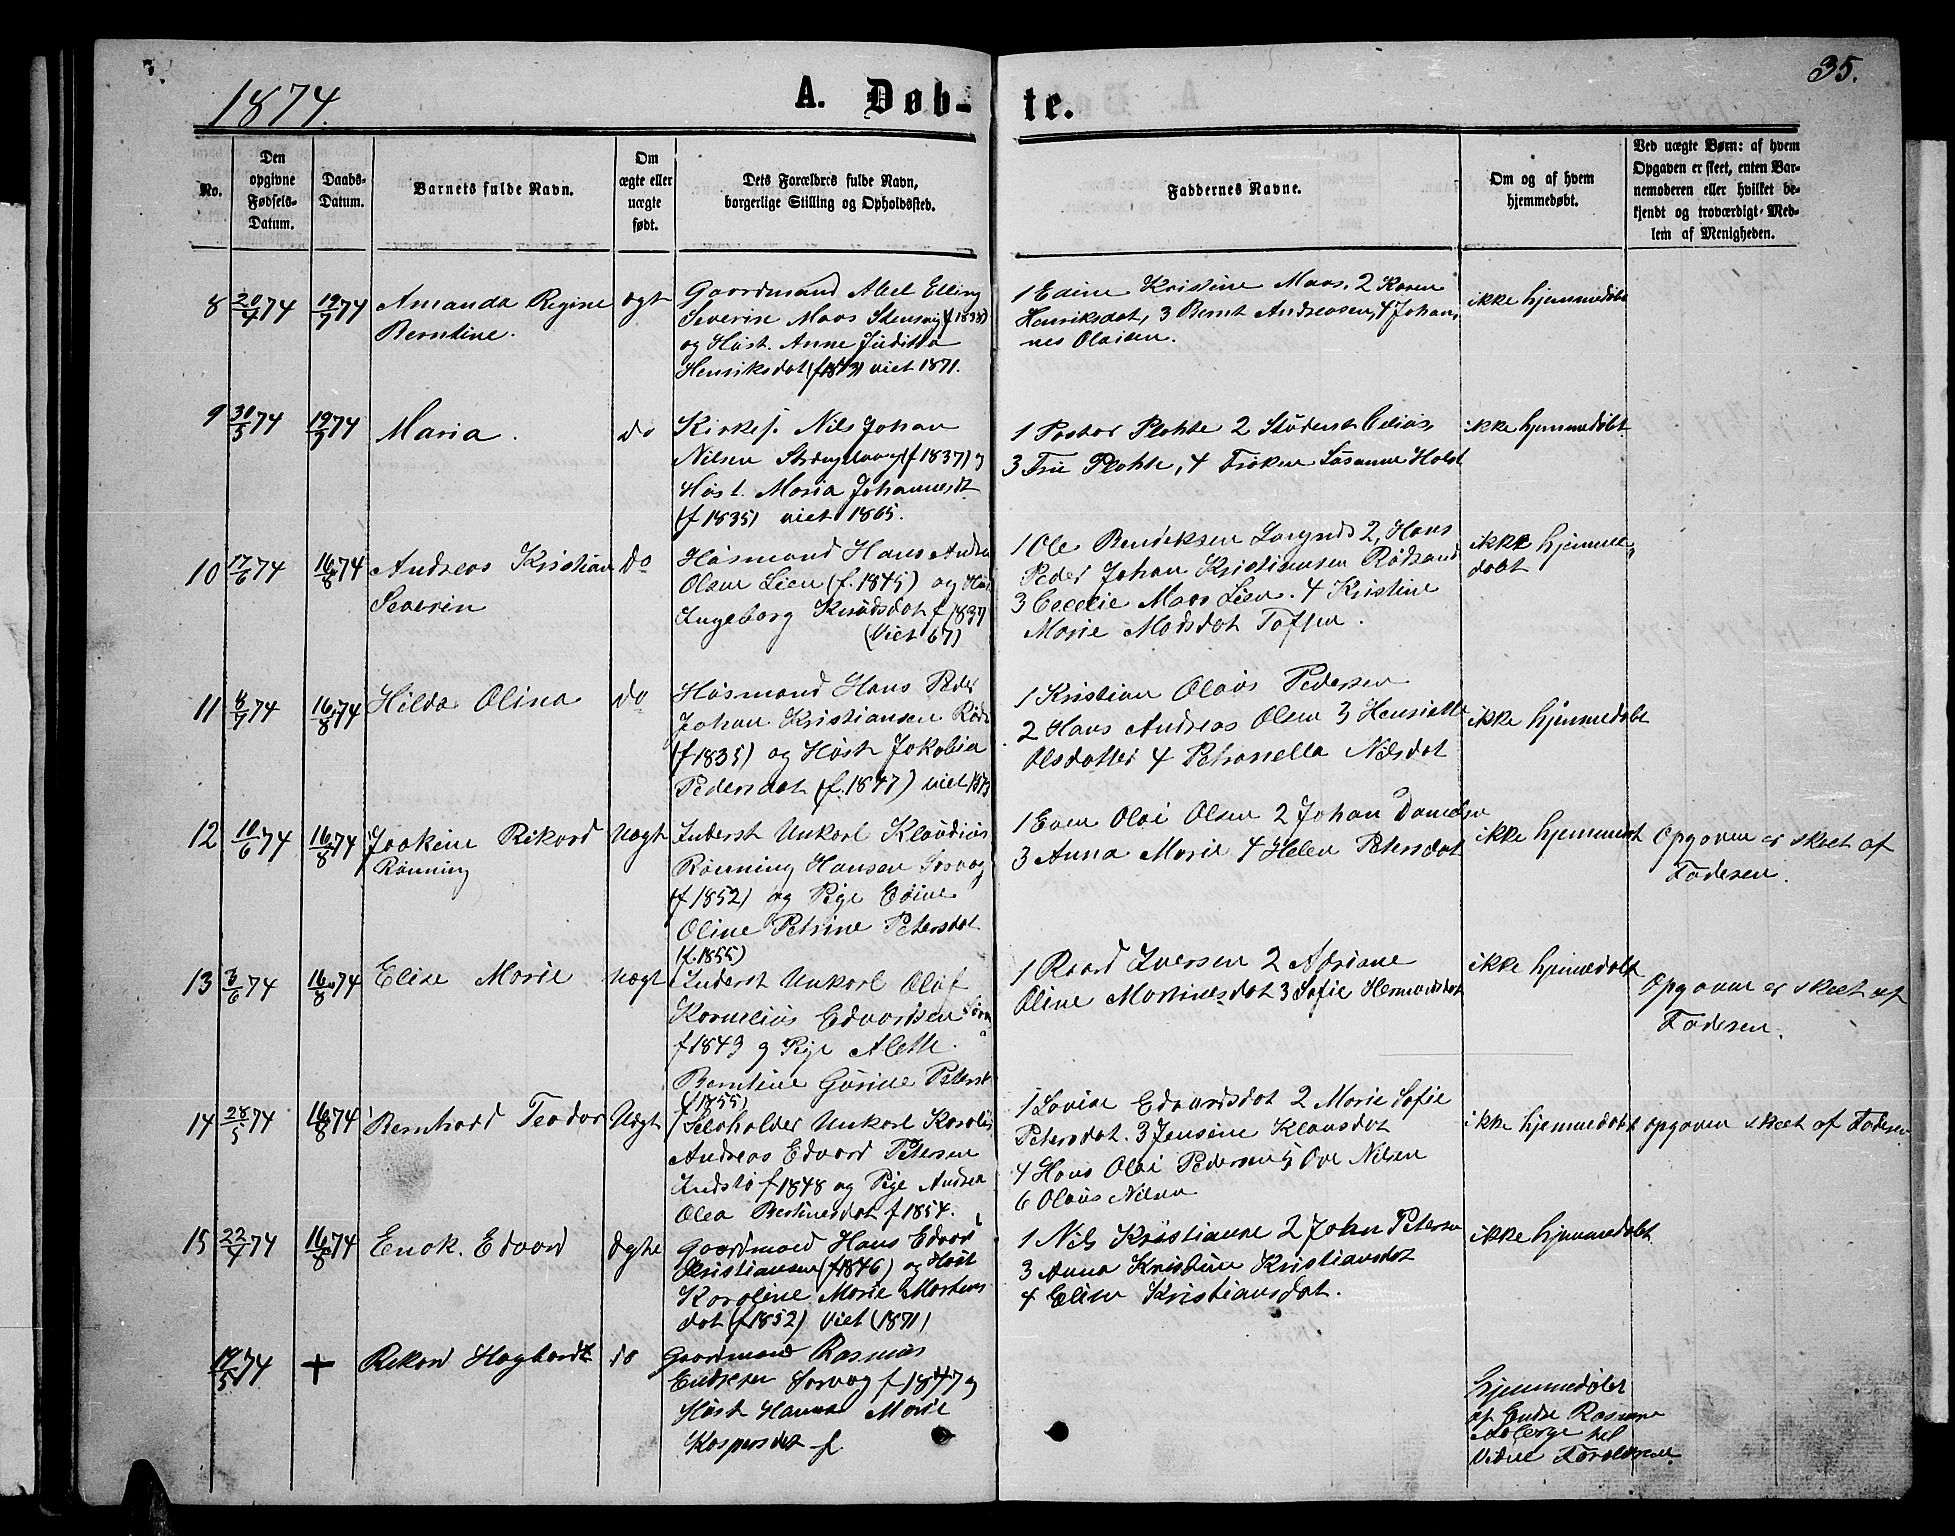 1874.
A. Døb-
te.
35.
No.
Den
opgivne
Fødsels-
Datum.
Daabs-
Datum.
Barnets fulde Navn.
Om
ægte eller
uægte
født.
Dets Forældres fulde Navn,
borgerlige Stilling og Opholdssted.
Faddernes Navne.
Om og af hvem
hjemmedøbt.
Ved uægte Børn: af hvem
Opgaven er skeet, enten Bar-
nemoderen eller hvilket be-
kjendt og troværdigt Med-
lem af Menigheden.
8 20/4 74 19/7 74 Amanda Regine
Berntine.
ægt
Gaardmand Abel Elling
Severin Maas (f 1838)
og Hust. Anne Juditha
Henriksdat (f 1843) viet 1871.
1 Edine Kristine Maas, 2 Karen
Henriksdat, 3 Bernt Andreasen, 4 Johan-
nes Olaisen.
ikke hjemmedøbt
9 30/5 74 19/7 74 Maria.
do
Kirkes. Nils Johan
Nilsen (f 1837) og
Hust. Maria Johannesdt
(f 1835) viet 1865.
1 Pastor Plahte 2 Student
3 Fru Plahte, 4 Frøken Susanne Holst
ikke hjemmedøbt
10 17/6 74 16/8 74 Andreas Kristian
Severin
do
Husmand Hans Andrea
Olsen Lien (f. 1845) og Hus
Ingeborg Knudsdat f 1837
(Viet 67)
1 Ole Bendiksen 2, Hans
Peder Johan Kristiansen Rødsand
3 Cecelie Maas Lien. 4 Kristine
Marie Madsdat Toften.
ikke hjemme-
døbt
11 6/7 74 16/8 74 Hilda Olina
do
Husmand Hans Peder
Johan Kristiansen Røds
(f 1835) og Hust Jakobia
Pedersdat (f. 1847) viet 1873
1 Kristian Olaus Pedersen
2 Hans Andreas Olsen 3 Henriette
Olsdatter 4 Petronella Nilsdat
ikke hjemmedøbt
12 10/6 74 16/8 74 Joakim Rikard
Rønning
Uægt
Inderst Unkarl Klaudius
Rønning Hansen Sørvaag
(f 1852) og Pige Edine
Oline Petrine Petersdat
(f. 1855)
1 Even Olai Olsen 2 Johan Danielsen
3 Anna Marie 4 Helen Petersdat
ikke hjemmedøbt
Opgaven er skeet af
Faderen.
13 3/6 74 16/8 74 Elise Marie
Uægt
Inderst Unkarl Olaf
Kornelius Edvardsen
f 1849 og Pige Aleth.
Berntine Gurine Petersd
(f 1855)
1 Iversen 2 Adriane
Oline Martinesdat 3 Sofie Hermansdat
ikke hjemmedøbt
Opgaven er skeet af
Faderen.
14 28/5 74 16/8 74 Bernhard Teodor
Uægt
Selvholder Unkarl Karolius
Andreas Edvard Petersen
Indstø f 1848 og Pige Andrea
Olea Bertinesdat f 1854.
1 Lovise Edvardsdat 2 Marie Sofie
Petersdat. 3 Jensine Klausdat
4 Hans Olai Pedersen 5 Ove Nilsen
6 Olaus Nilsen
ikke hjemmedøbt
opgaven skeet af Faderen
15 22/4 74 16/8 74 Enok. Edvard
ægte
Gaardmand Hans Edvard
Kristiansen (f 1846) og Hust
Karoline Marie Martens
dat (f 1852) viet (1871)
1 Nils Kristiansen 2 John Petersen
3 Anna Kristine Kristiansdat
4 Elisen Kristiansdat.
ikke hjemmedøbt
19/5 74 + Rikard Hagbart
do
Gaardmand Rasmus
Endresen Sørvaag f 1847 og
Hust Hanna Marie
Kaspersdat f.
hjemmedøbt
af Endre Rasmus